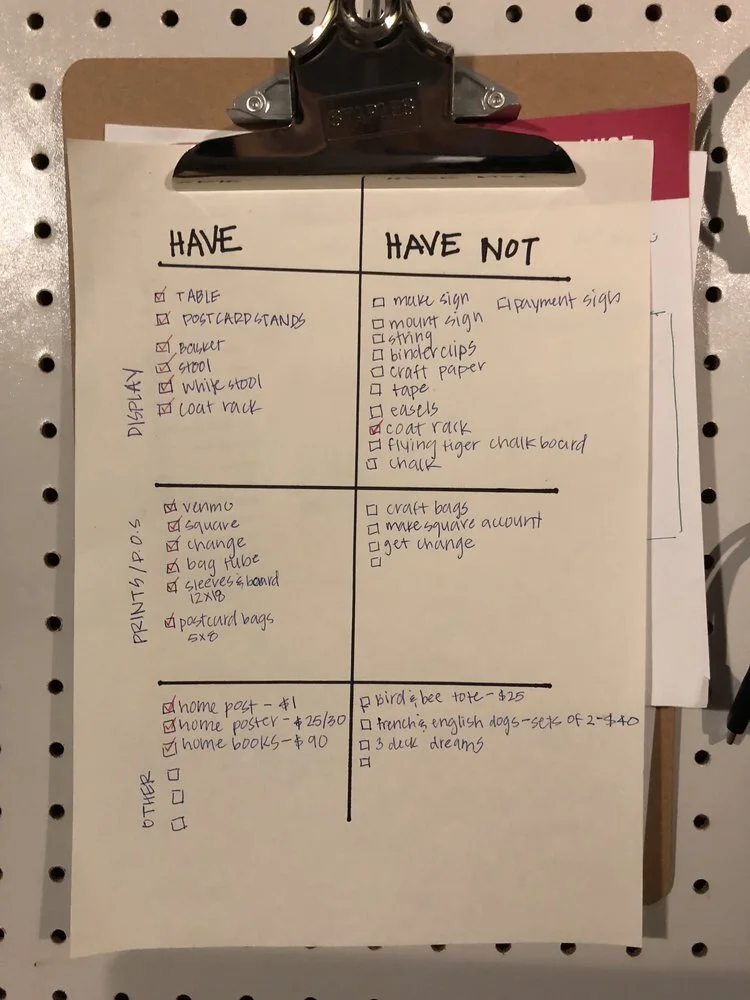 STAPLES
HAVE
HAVE NOT
DISPLAY
TABLE
POSTCARD STANDS
Basket
stool
white stool
coat rack
make sign
payment sign
mount sign
string
binderclips
craft paper
tape
easels
coat rack
flying tiger chalkboard
chalk
PRINTS/P.O.S
venmo
square
change
bag tube
sleeves & board
12x18
postcard bags
5x8
craft bags
make square account
get change
OTHER
home post - $1
home poster - $25/30
home books - $90
bird & bee tote - $25
french & english dogs - sets of 2 - $40
3 deck dreams